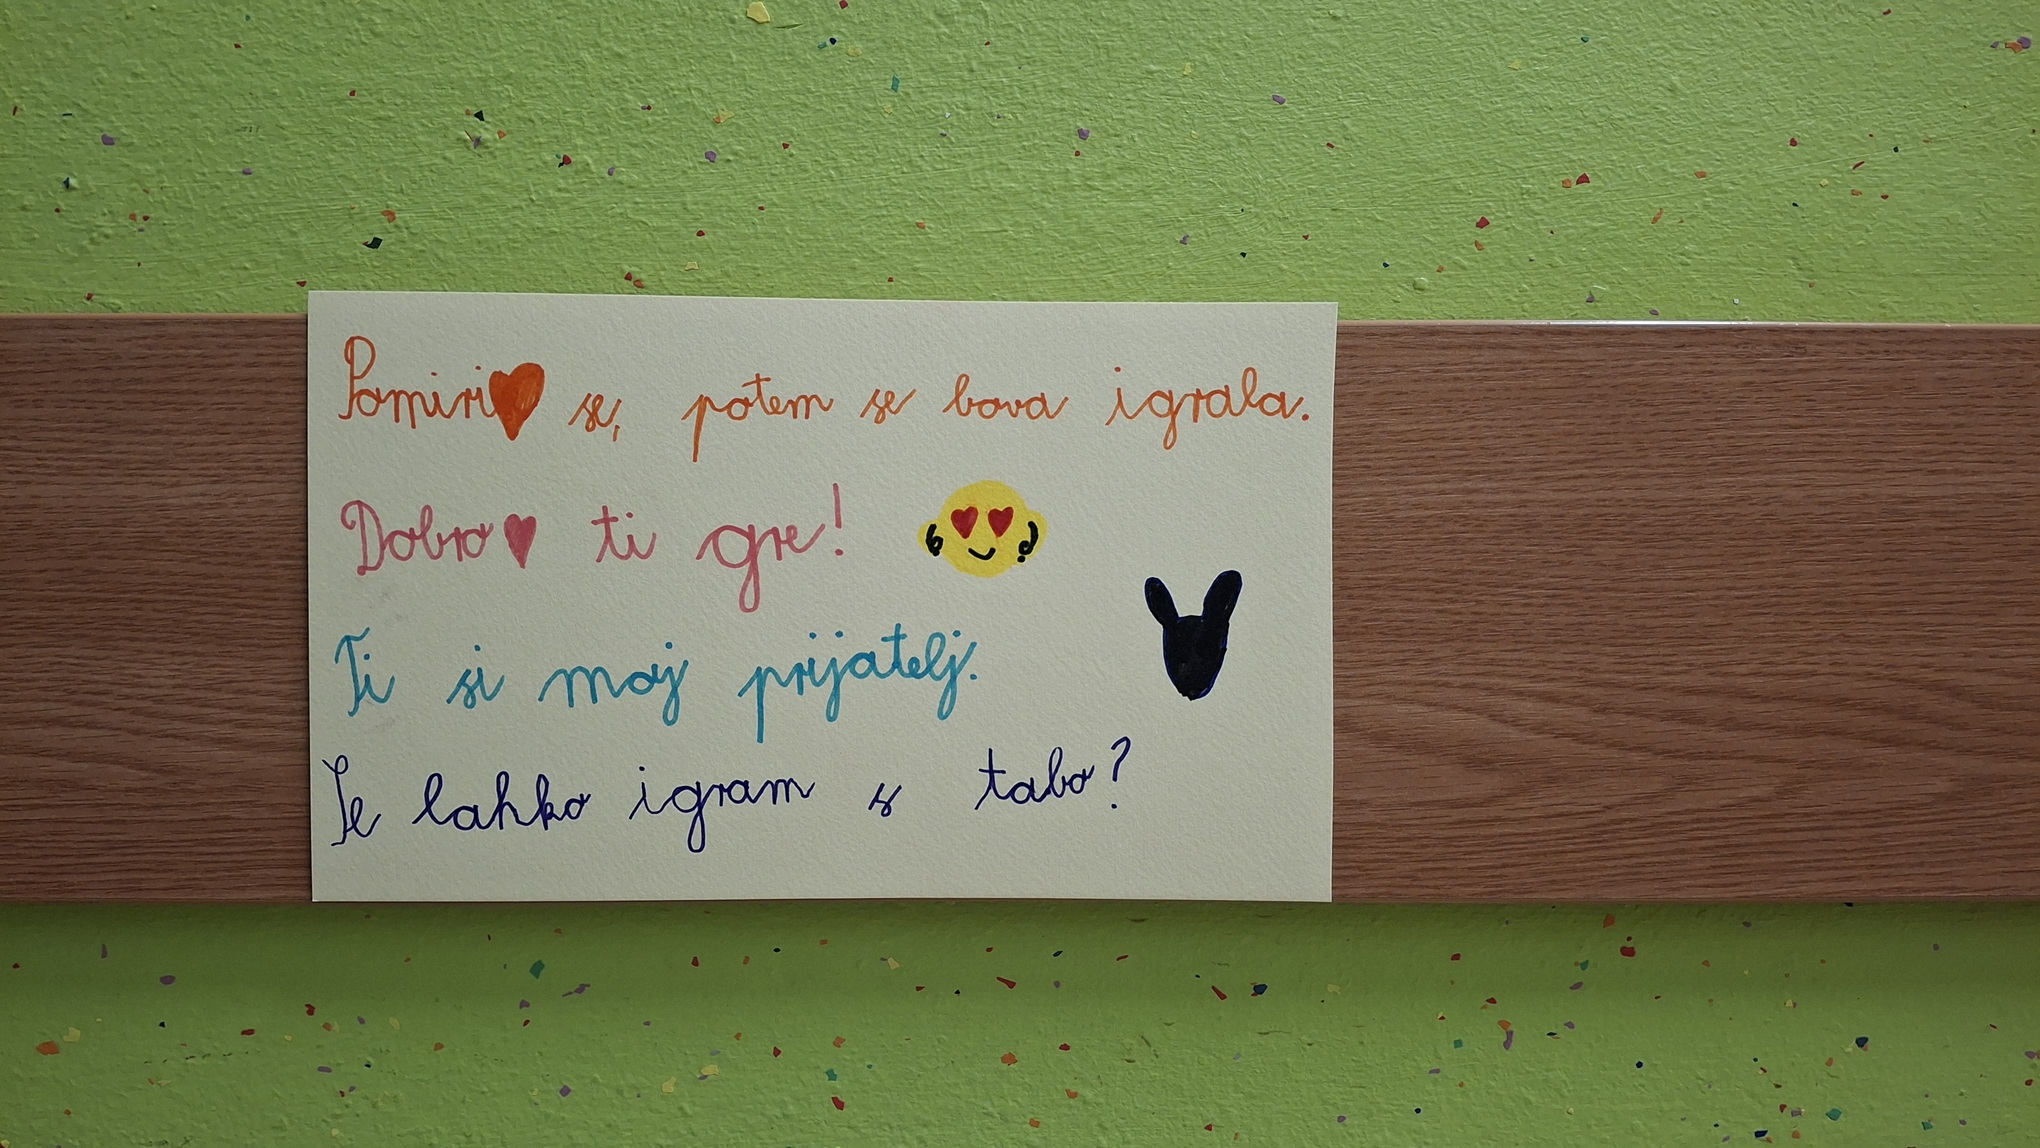 Pomiri se, potem se bova igrala.
Dobro ti gre!
Ti si moj prijatelj.
Se lahko igram s tabo?